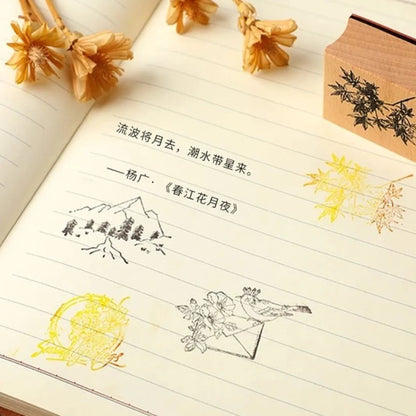 流波将月去，潮水带星来。
——杨广·《春江花月夜》